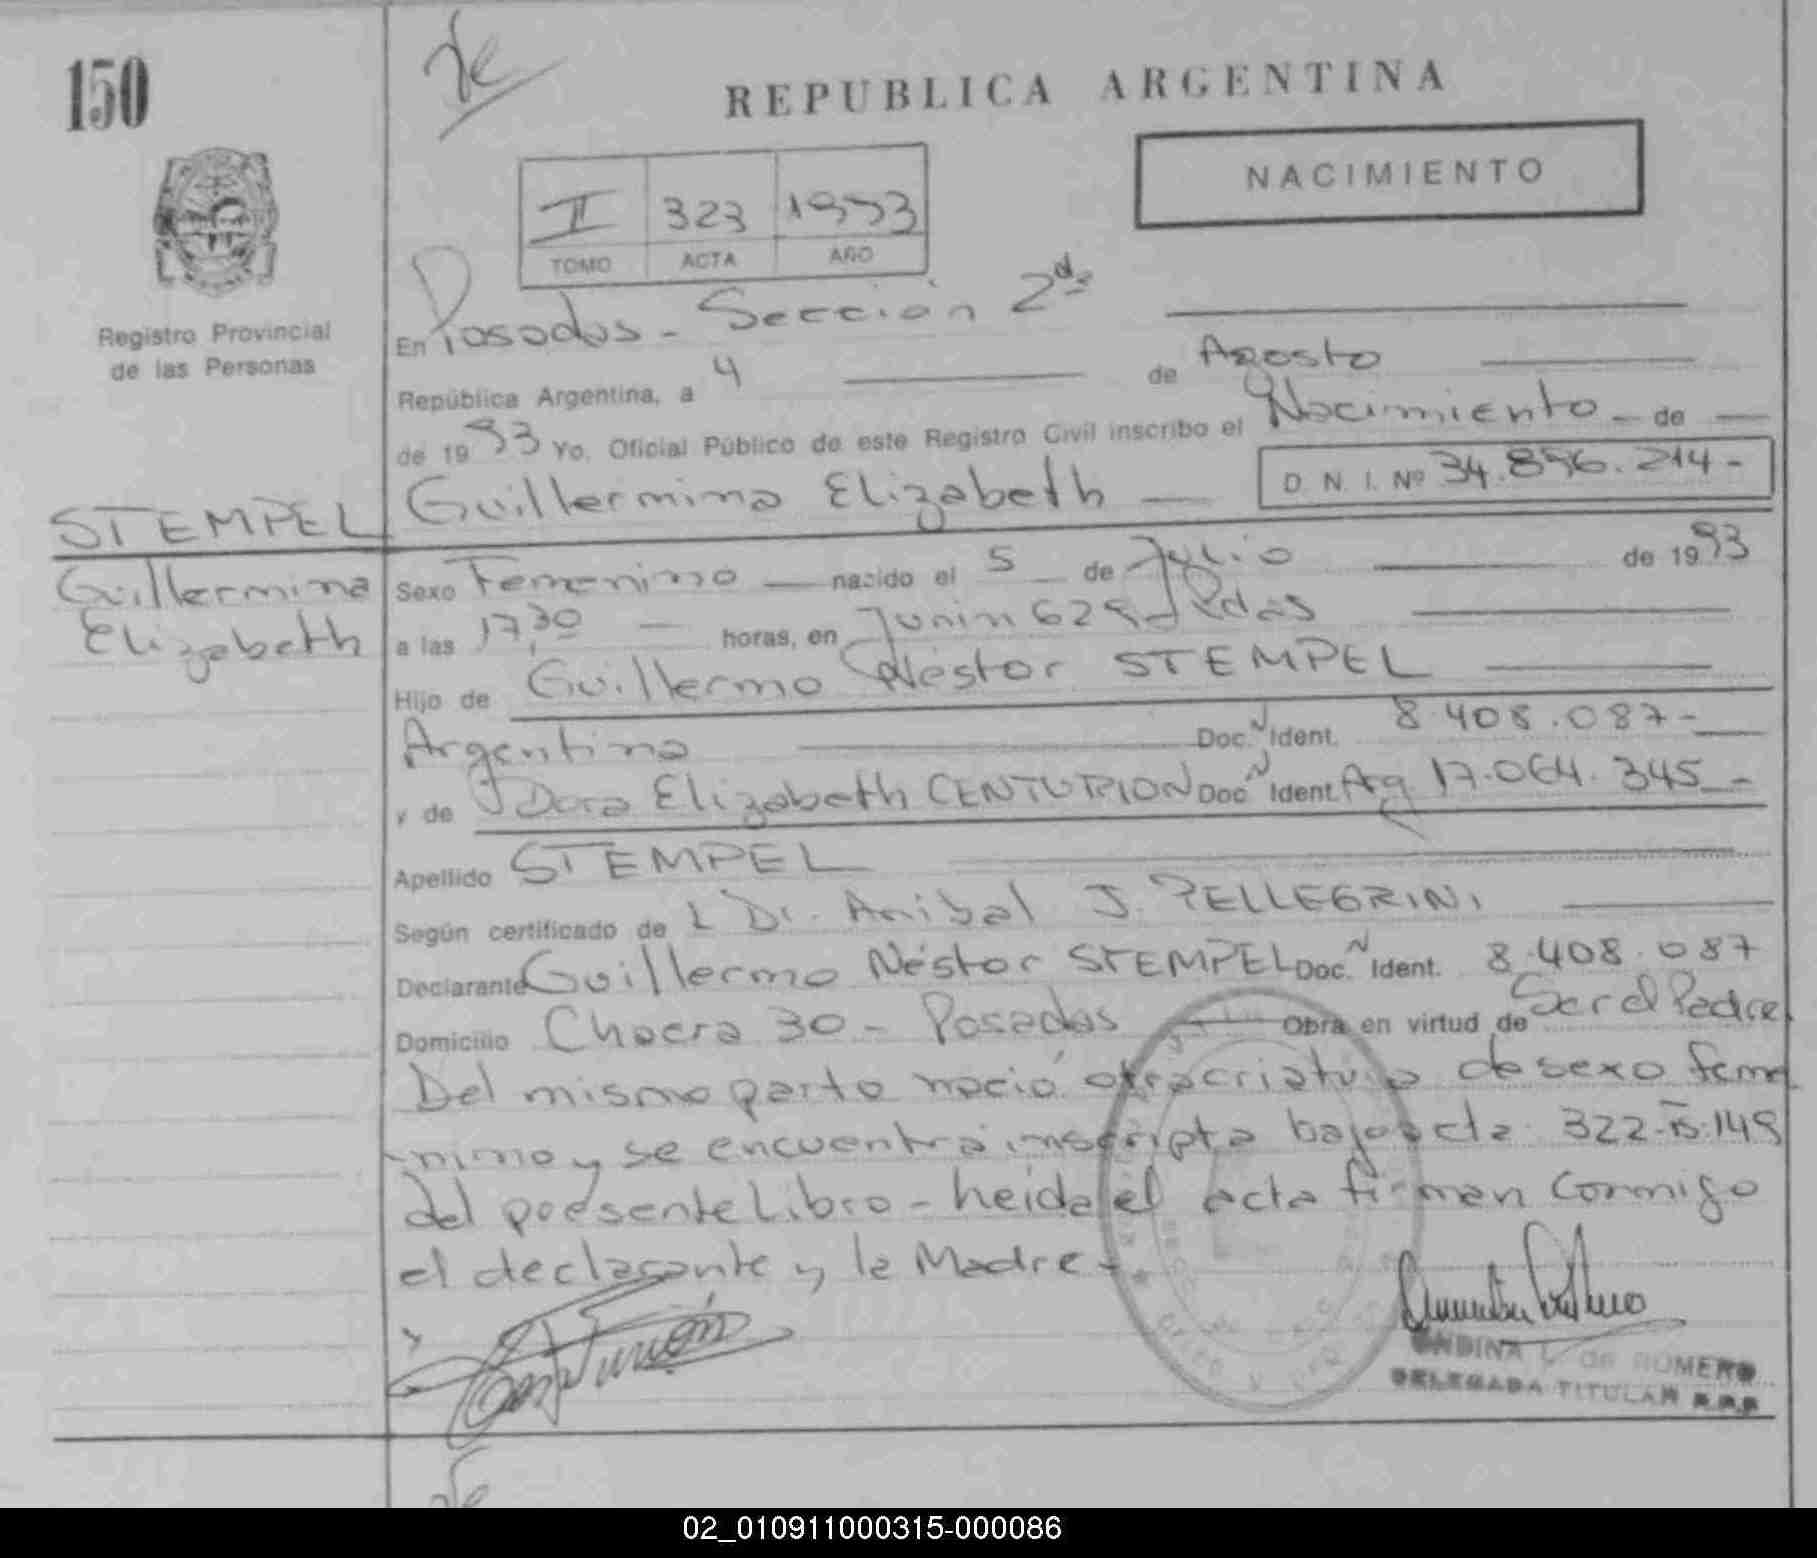 150
REPUBLICA ARGENTINA
NACIMIENTO
II 323 1993
TOMO ACTA AÑO
Registro Provincial
de las Personas
En Posadas - Sección 2da
República Argentina, a 4 de Agosto
de 1993 Yo, Oficial Público de este Registro Civil inscribo el Nacimiento - de
STEMPEL
Guillermina
Elizabeth
Guillermina Elizabeth D.N.I. Nº 34.896.214-
Sexo Femenino nacido el 5 de Julio de 1993
a las 17,30 horas, en Junin 629 - Pdas
Hijo de Guillermo Néstor STEMPEL
Argentino Doc. Ident. 8.408.087-
y de Dora Elizabeth CENTURION Doc Ident. Arg 17.064.345-
Apellido STEMPEL
Según certificado de L Dr. Anibal J. PELLEGRINI
Declarante Guillermo Néstor STEMPEL Doc. Ident. 8.408.087
Domicilio Chacra 30 - Posadas Obra en virtud de Ser el Padre
Del mismo parto nació otra criatura de sexo feme
nino y se encuentra inscripta bajo acta 322 149
del presente Libro - Leida el acta firman conmigo
el declarante y la Madre -
Centurión
ONDINA L. de ROMERO
DELEGADA TITULAR R.P.P.
02_010911000315-000086